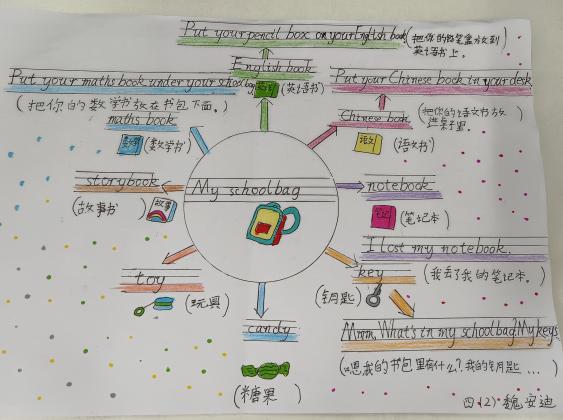 Put your pencil box on your English book
(把你的铅笔盒放到
英语书上。)
English book
英语
(英语书)
Put your maths book under your schoolbag
(把你的数学书放在书包下面。)
maths book
数学
(数学书)
Put your Chinese book in your desk
(把你的语文书放
进桌子里。)
Chinese book
语文
(语文书)
storybook
(故事书)
故事
My schoolbag
notebook
笔记
(笔记本)
I lost my notebook.
(我丢了我的笔记本。)
toy
(玩具)
candy
(糖果)
key
(钥匙)
Mmm. What's in my schoolbag? My keys
(嗯我的书包里有什么?我的钥匙...)
四(2) 魏安迪